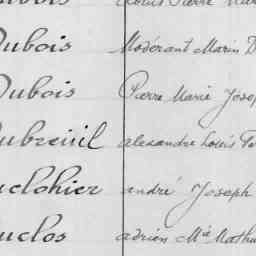 Louis Pierre
Dubois Modérant Marin D
Dubois Pierre Marie Josep
ubreuil alexandre Louis
uclohier andré Joseph
uclos adrien Mie Mathu